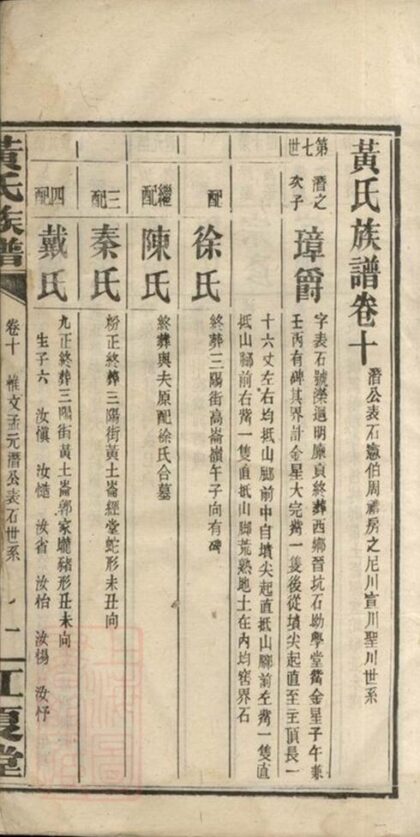 黃氏族譜卷十
潛公表石憲伯周禮房之尼川宣川聖川世系
第七世
潛之次子
璋爵
字表石號瀠邈明廩貢終葬西鄉晉坑石助學堂嘴金星子午兼
壬丙有碑其界計金星大完嘴一隻後從墳尖起直至主頂長一
十六丈左右均抵山腳前中自墳尖起直抵山腳前左嘴一隻直
抵山腳前右嘴一隻直抵山腳荒熟地土在內均窖界石
配 徐氏
終葬三陽街高崙嶺午子向有碑
繼配 陳氏
終葬與夫原配徐氏合墓
三配 秦氏
粉正終葬三陽街黃土崙經堂蛇形未丑向
四配 戴氏
九正終葬三陽街黃土崙郭家壠豬形丑未向
生子六 汝愼 汝憷 汝省 汝柏 汝楊 汝伃
黃氏族譜
卷十 惟文孟元潛公表石世系
江夏堂